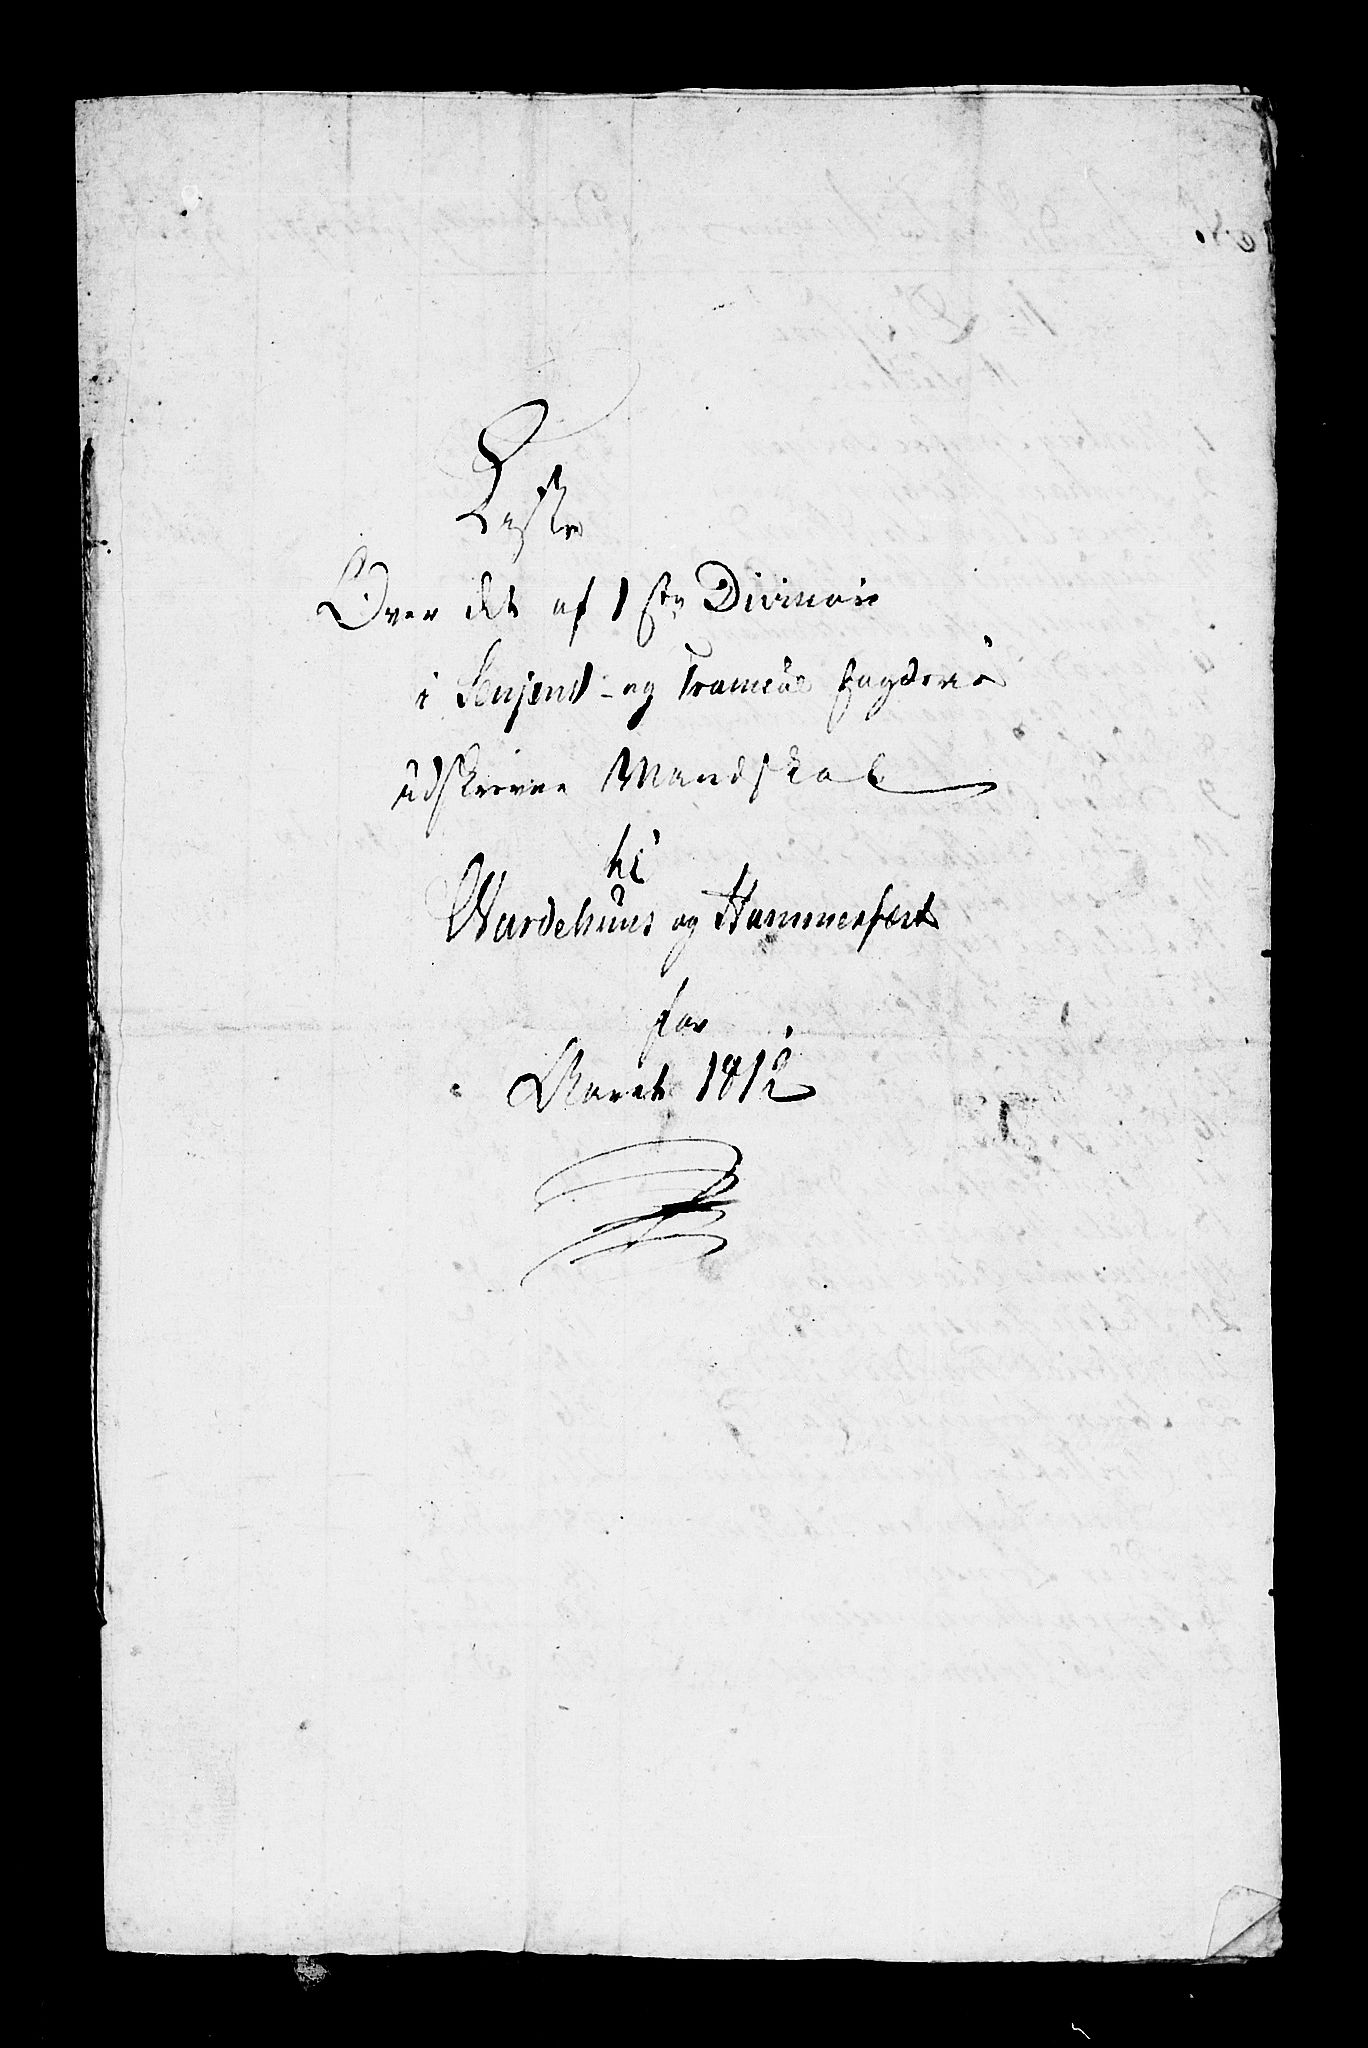 Liste
Over det af 1ste Division
i Senjens- og Tromsöe fogderie
udskrevne Mandskab
til
Wardehuus og Hammerfest
for
Aaret 1812